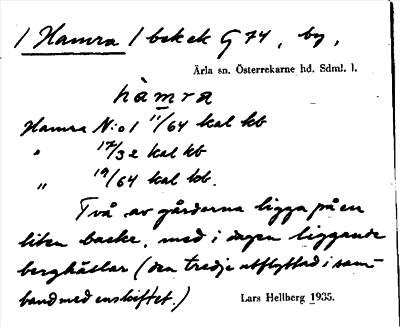 / Hamra / bek ek G 74, by,
Ärla sn. Österrekarne hd. Sdml. l.
hàmra
Hamra N:o 1 11/64 kal kb
" 17/32 kal kb
" 19/64 kal kb.
Två av gårderna ligga på en
liten backe, med i dagen liggande
berghällar (den tredje utflyttad i sam-
band med enskiftet.)
Lars Hellberg 1935.